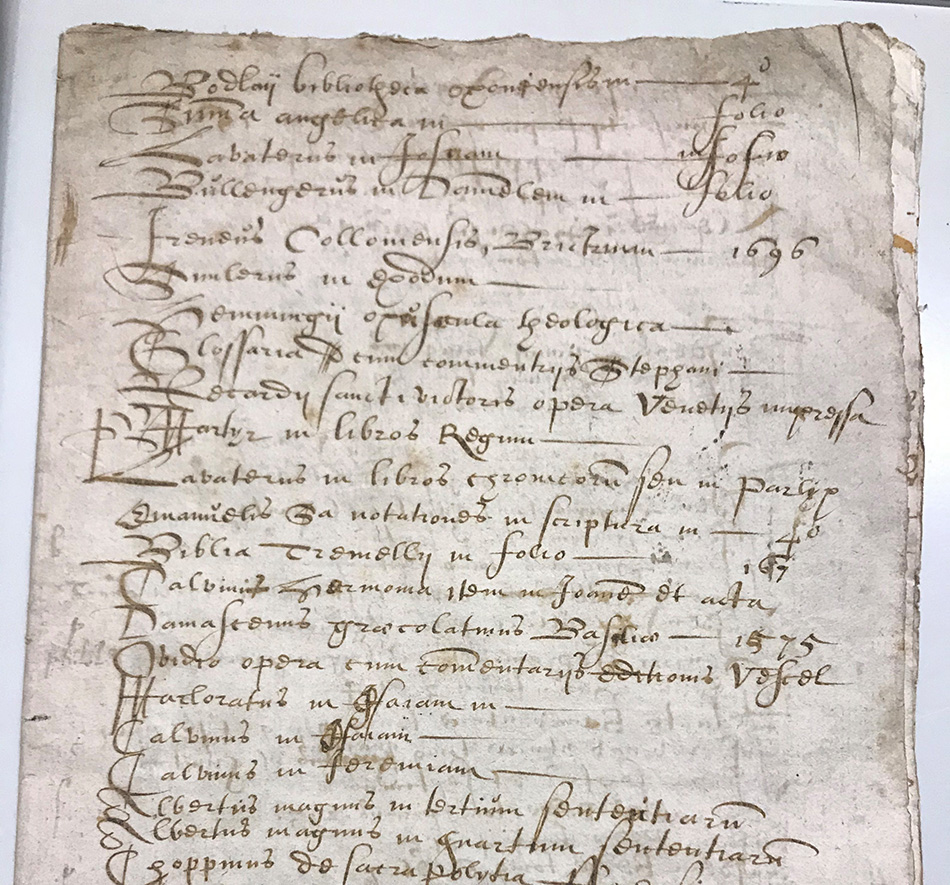 Bodlaij bibliotheca oxoniensis in 4°
Summa angelica in folio
Lavaterus in Josuam in folio
Bullengerus in Danielem in folio
Ireneus Collomensis, 1696
Simlerus in Exodum
Hemmingij opuscula theologica
Glossaria cum commentrijs Stephani
Recardij sancti victoris opera Venetijs impressa
P Martyr in libros Regum
Lavaterus in libros chronicorū seu in Parlip
Emanuelis Sa notationes in scriptura in 4°
Biblia Tremellij in folio
167
Calvinus Hermonia item in Joanē et acta
Damascenus græcolatinus Basiliæ 1575
Ovidio opera cum cōmentarijs editionis Vescel
Marloratus in Esaiam in
Calvinus in Esaiam
Calvinus in Jeremiam
Albertus magnus in tertium sententiarū
Albertus magnus in quartum sententiarū
Choppinus de sacra Polytia